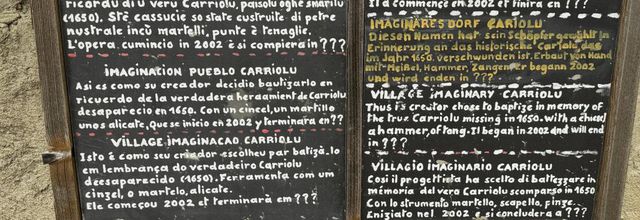 ricordu di u veru Carriolu, paisolu oghe smaritu
(1650). Stè cassucie so state custruite di petre
nustrale incù martelli, punte è tenaglie.
L'opera cumincio in 2002 è si compiera in ???
IMAGINACION PUEBLO CARRIOLU
Asi es como su creador decidio bautizarlo en
ricuerdo de la verdadera heraament de Carriolu
desaparecio en 1650. Con un cincel, un martillo
unos alicate, Que se inicio en 2002 y terminara en??
VILLAGE IMAGINACAO CARRIOLU
Isto é como seu criador escolheu par batizá. lo
em lembrança do verdadeiro Carriolu
deesaparecido (1650). Ferramenta com um
cinzel, o martelo, alicate.
Ele começou 2002 et terminará em ???
Il a commencé en 2002 et finira en ???
IMAGINÄRES DORF CARRIOLU
Diesen Namen hat sein Schöpfer gewählt in
Erinnerung an das historische Cariolu, das
im Jahr 1650. verschwunden ist. Erbaut von Hand
mit Meißel, Hammer, Zangen. Er begann 2002
und wird enden in ???
VILLAGE IMAGINARY CARRIOLU
Thus is creator chose to baptize in memory of
the true Carriolu missing in 1650. with a chisel
a hammer, of tong. Il began in 2002 and will end
in ???
VILLAGIO IMAGINARIO CARRIOLU
Cosi il progettista ha scelto di battezzare in
memória del vera Carriolu scomparso in 1650
Con lo strumento martello, scapello, pinze.
Iniziato nel 2002 e si concludera a ???